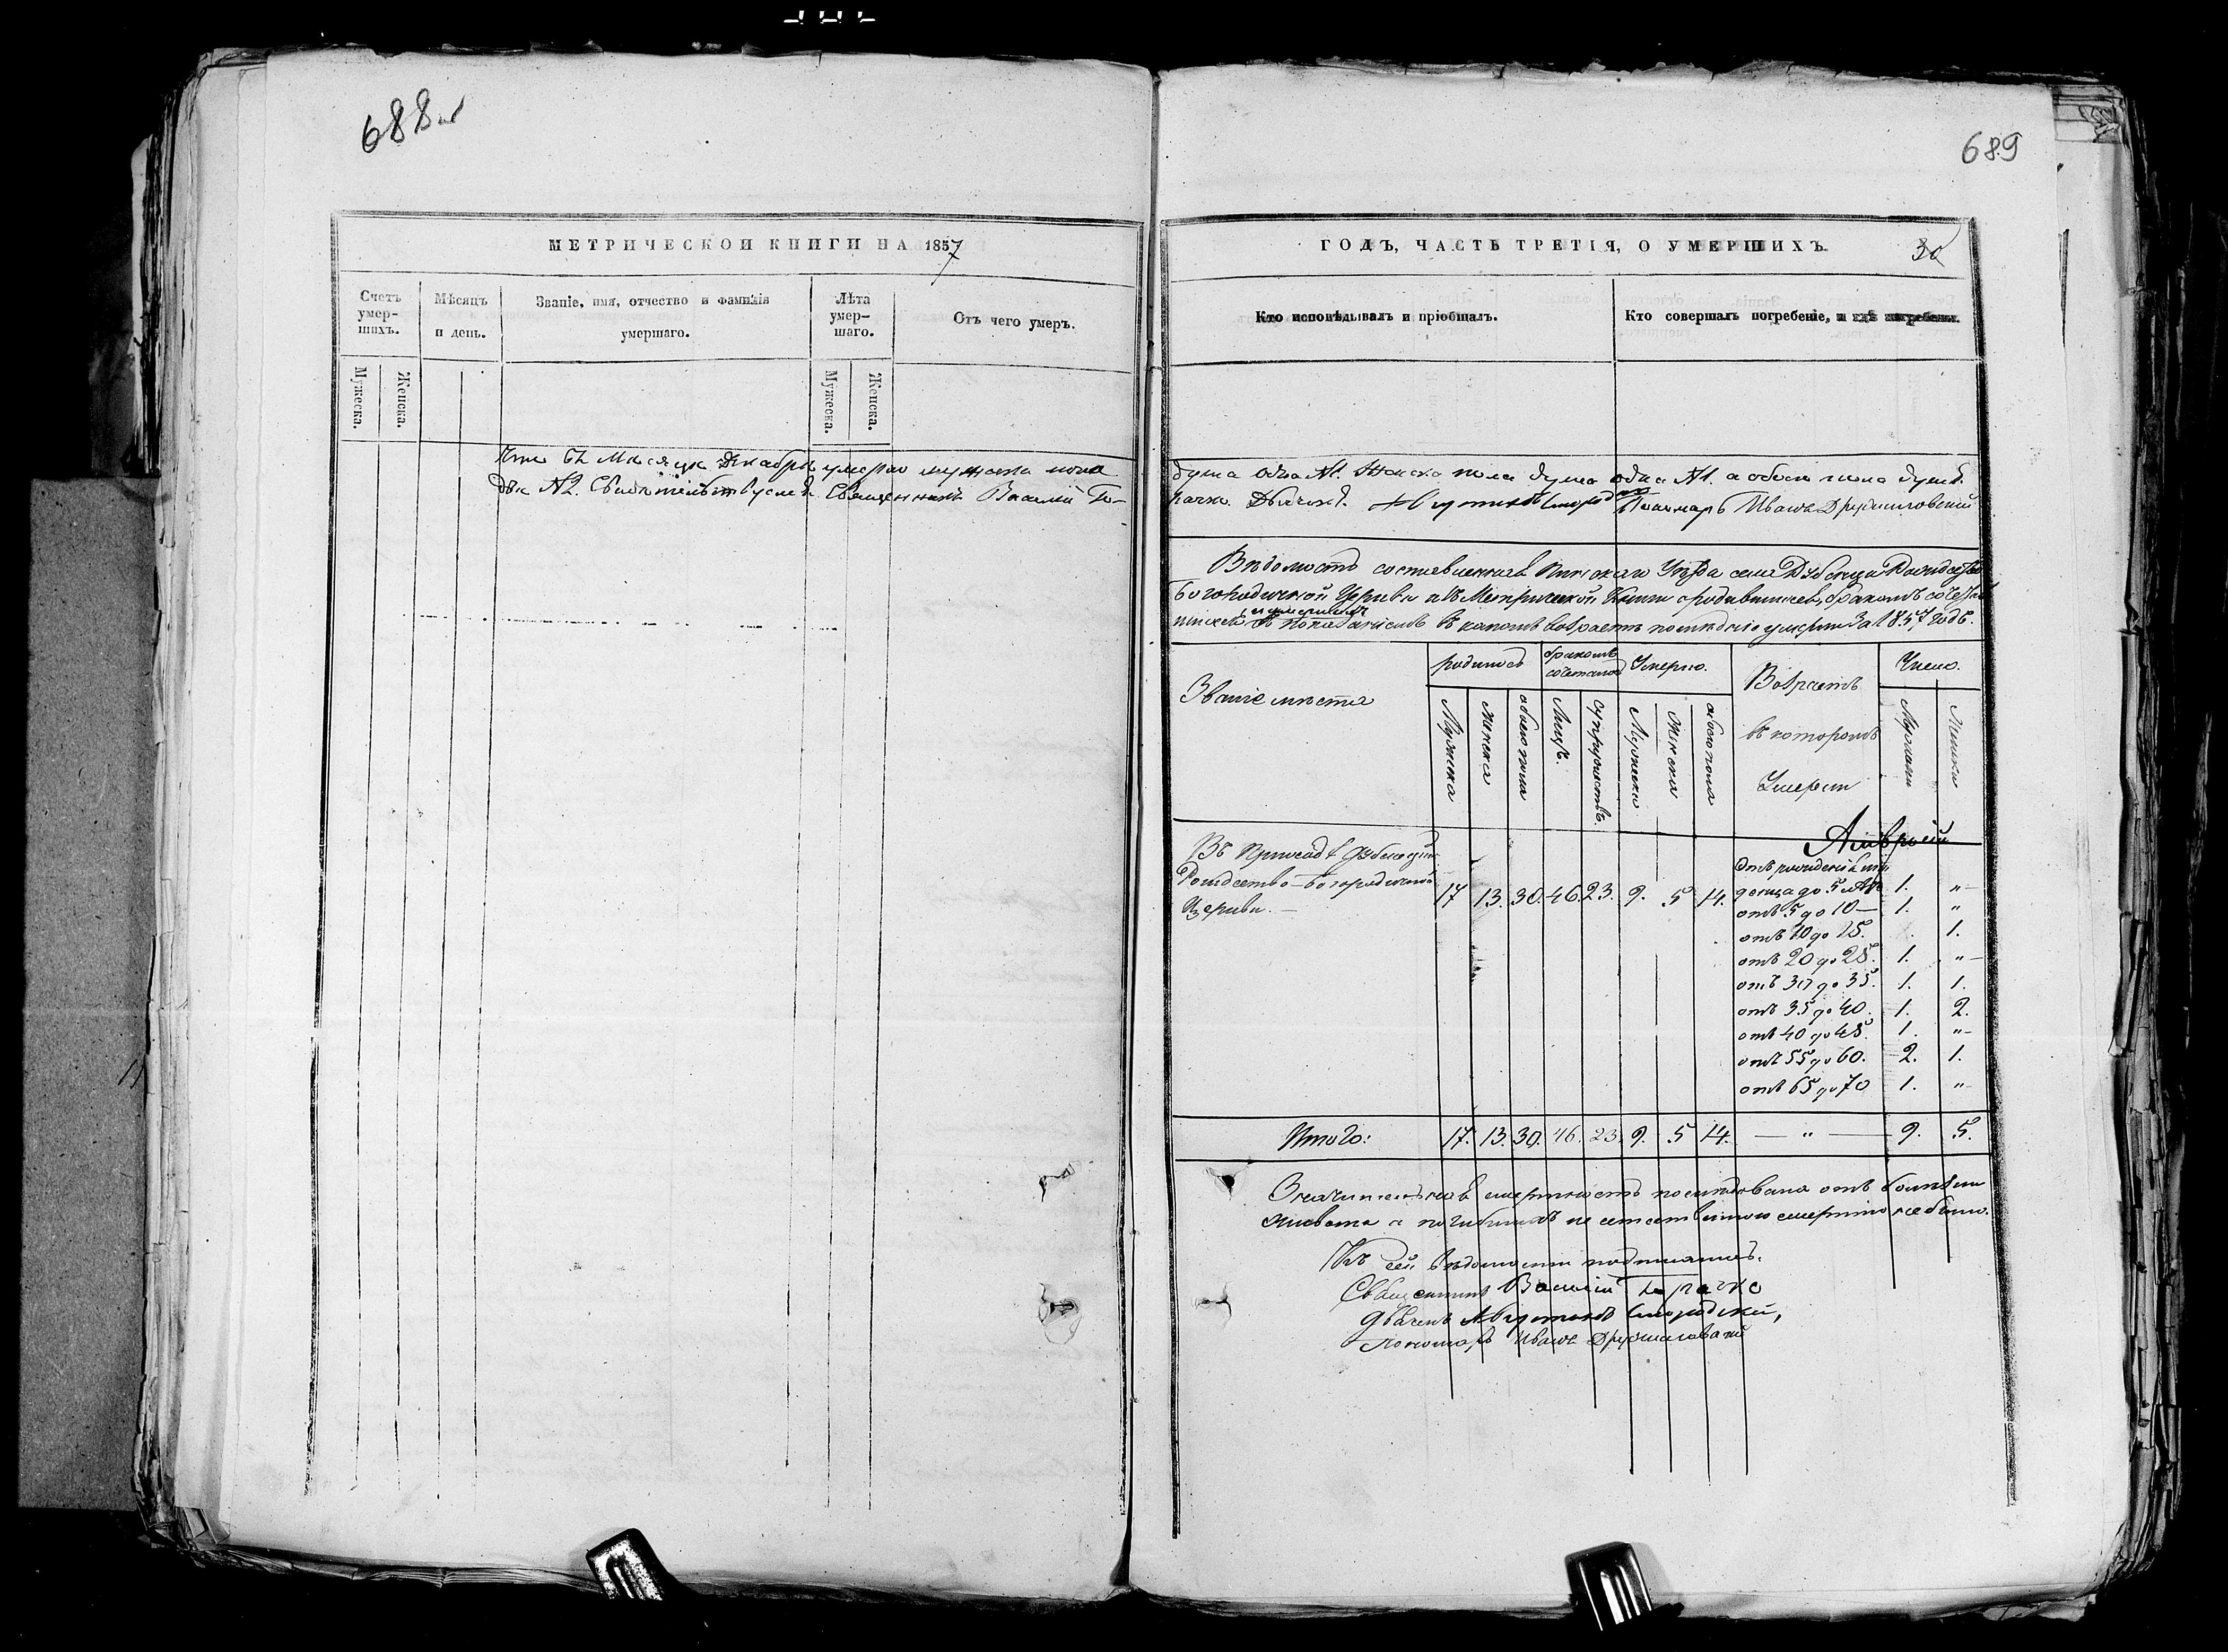 688
689
МЕТРИЧЕСКОЙ КНИГИ НА 1857
Счетъ умер-шихъ.
Мѣсяцъ и день.
Званіе, имя, отчество и фамилія умершаго.
Лѣта умер-шаго.
Отъ чего умеръ.
Мужеска.
Женска.
Мужеска.
Женска.
мѣсяцѣ Декабрѣ умерло мужеска пола
№2. Свидѣтельствуемъ Священникъ Василій
ГОДЪ, ЧАСТЬ ТРЕТІЯ, О УМЕРШИХЪ.
30
Кто исповѣдывалъ и пріобщалъ.
Кто совершалъ погребеніе, и гдѣ погребены.
душа одна №1. Женска пола душа одна №1. а обоего пола душъ
Дьячекъ Августинъ Пономарь Иванъ
Вѣдомость составленная Пинскаго Уѣзда села Рождество
Богородичной Церкви изъ Метрической Книги о родившихся, бракомъ
въ какомъ возрастѣ умерли За 1857 годъ.
Званіе мѣста
родилось
бракомъ
Умерло.
Возрастъ
въ которомъ
Умерли
Число.
Мужеска
Женска
обоего пола
Лицъ.
супружествъ.
Мужеска
Женска
обоего пола
Въ Приходѣ
Рождество-Богородичной
Церкви.
17 13. 30. 46. 23. 9. 5 14.
до 5 лѣтъ 1. "
отъ 5 до 10 1. "
отъ 10 до 15. 1.
отъ 20 до 25. 1. "
отъ 30 до 35. 1. 1.
отъ 35 до 40. 1. 2.
отъ 40 до 45. 1. "
отъ 55 до 60. 2. 1.
отъ 65 до 70 1. "
Итого: 17. 13. 30. 46. 23. 9. 5 14. — " — 9. 5.
смертность послѣдовала отъ болѣзни
живота а погибшихъ не естественною смертію не было.
Къ сей вѣдомости подписались.
Священникъ Василій
Дьячекъ Августинъ
Пономарь Иванъ